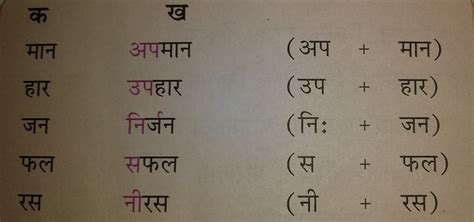 क ख
मान अपमान (अप + मान)
हार उपहार (उप + हार)
जन निर्जन (नि: + जन)
फल सफल (स + फल)
रस नीरस (नी + रस)